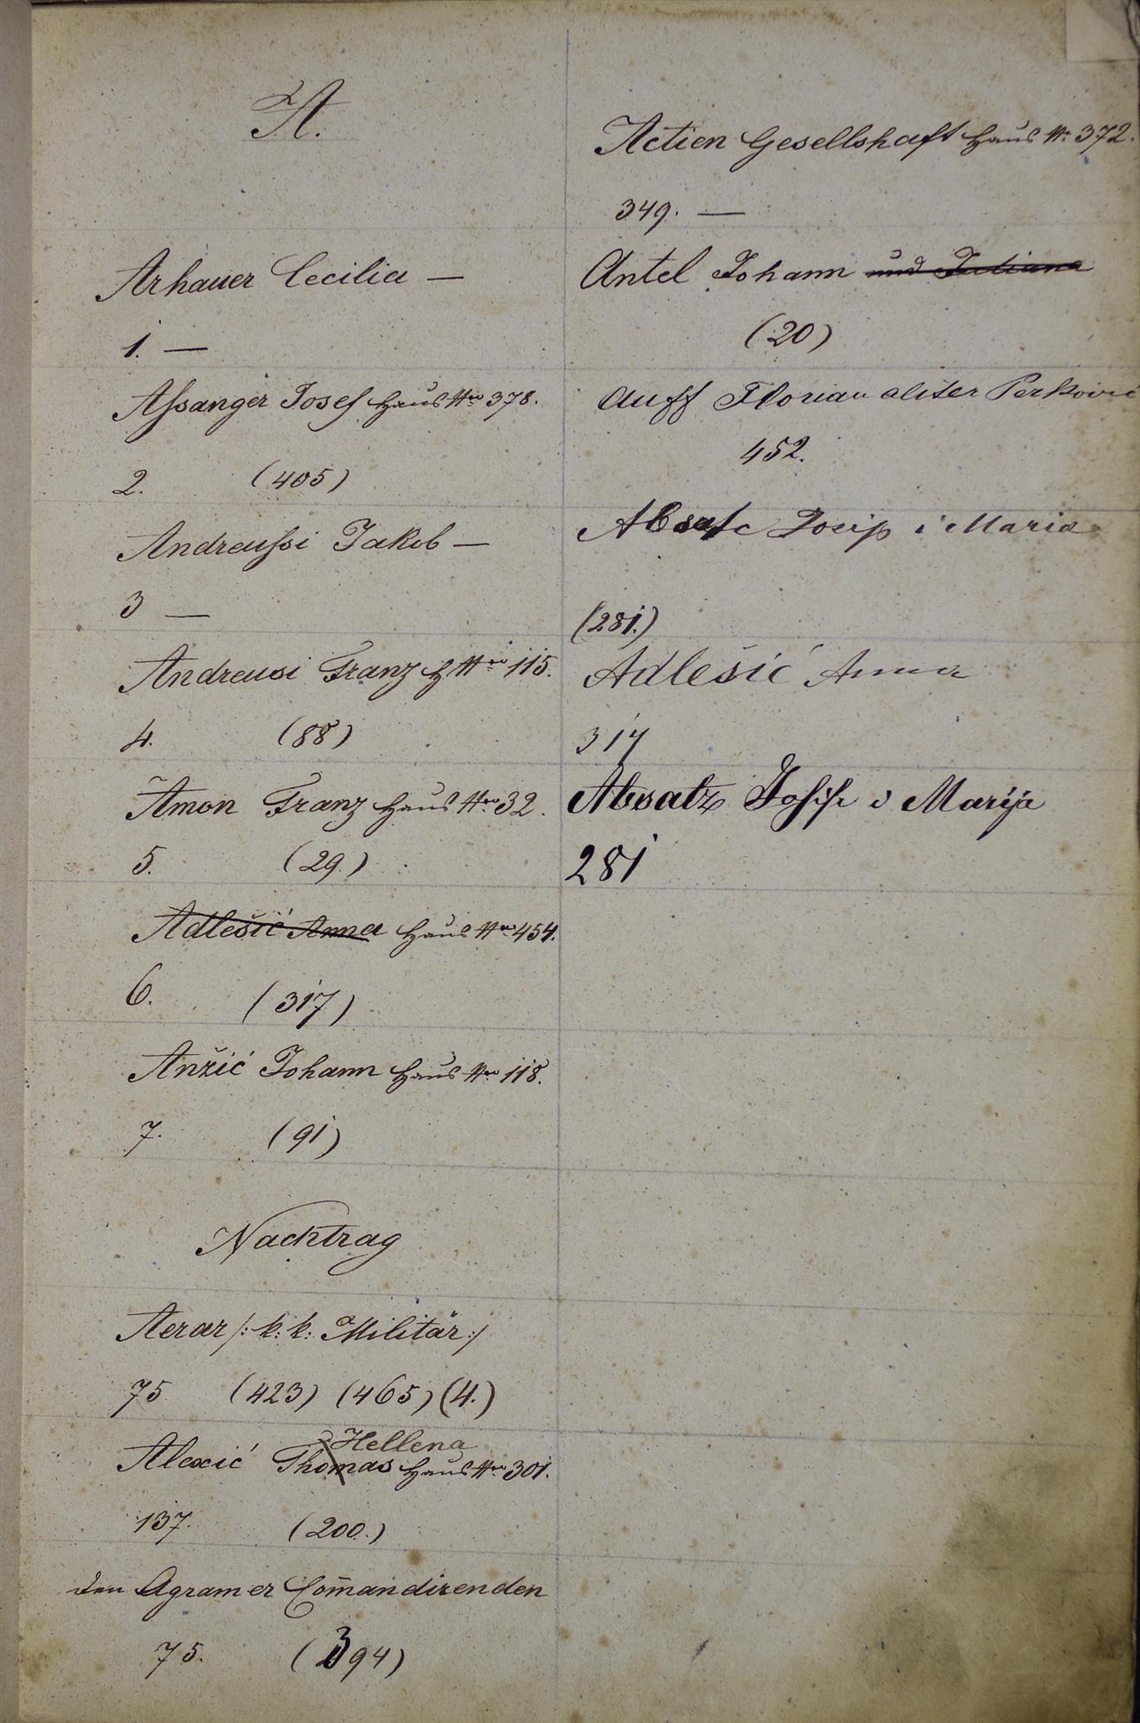 A.
Arhauer Cecilia —
1. —
Assanger Josef Haus Nro 378.
2. (405)
Andreussi Jakob —
3 —
Andreusi Franz H Nro 115.
4. (88)
Amon Franz Haus Nro 32.
5. (29.)
Adlešić Anna Haus Nro 454.
6. (317)
Anžić Johann Haus Nro 118.
7. (91)
Nachtrag
Aerar /: k: k: Militär :/
75 (423) (465) (4.)
Hellena
Alexić Thomas Haus Nro 301.
137. (200.)
den Agramer Com̄andirenden
75. (394)
Actien Gesellshaft Haus Nr 372.
349. —
Antel Johann und Juliana
(20)
Auff Florian aliter Perković
452.
Absatz Josip i Maria
(281.)
Adlešić Anna
317
Absatz Josip i Marija
281